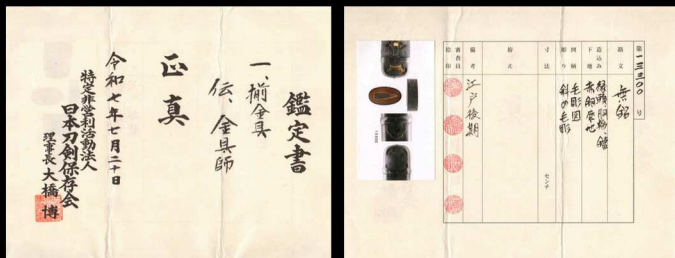 鑑定書
一、揃金具
伝、金具師
正真
令和七年七月二十日
特定非営利活動法人
日本刀剣保存会
理事長 大橋 博
第一三三〇〇号
銘文 無銘
造込み
下地
図柄 毛彫図
彫り 斜め毛彫
寸法 センチ
拵式
備考 江戸後期
審査員